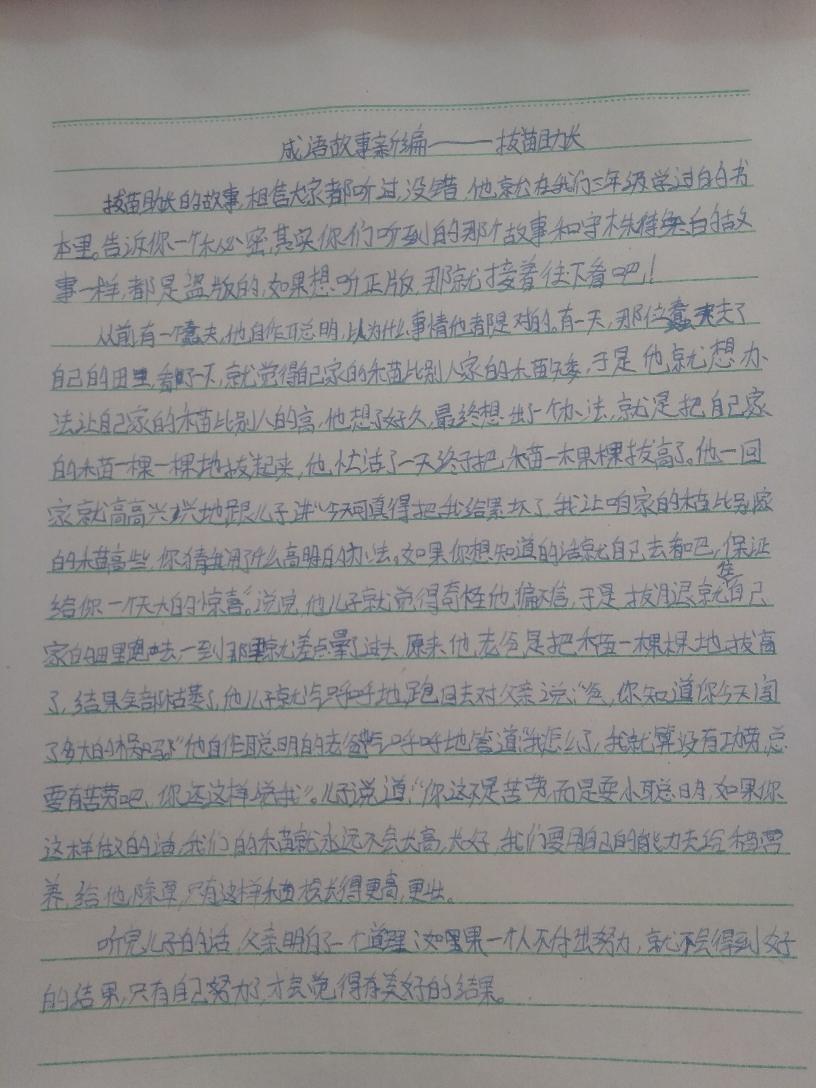 成语故事新编——拔苗助长
拔苗助长的故事,相信大家都听过,没错,他就在我们三年级学过的书
本里。告诉你一个大人密,其实你们听到的那个故事和守株待兔的故
事一样,都是盗版的,如果想听正版,那就接着往下看吧!
从前有一个蠢夫,他自作聪明,认为什么事情他都是对的。有一天,那位蠢夫走了
自己的田里,看了一下,就觉得自己家的禾苗比别人家的禾苗矮,于是他就想办
法让自己家的禾苗比别人的高,他想了好久,最终想出了一个办法,就是把自己家
的禾苗一棵一棵地拔起来,他忙活了一天终于把禾苗一棵棵拔高了。他一回
家就高高兴兴地跟儿子讲“今天可真得把我给累坏了,我让咱家的禾苗比别家
的禾苗高些,你猜我用了什么高明的办法。如果你想知道的话就自己去看吧,保证
给你一个天大的惊喜”。说完,他儿子就觉得奇怪他偏不信,于是拔腿就往自己
家的田里跑去,一到那里就差点晕了过去,原来他老爸是把禾苗一棵棵地拔高
了,结果全部枯萎了,他儿子就气呼呼地跑回去对父亲说:“爸,你知道你今天闯
了多大的祸吗?”他自作聪明的老爸气呼呼地答道:“我怎么了,我就算没有功劳,总
要有苦劳吧,你还这样说我”。儿子说道:“你这不是苦劳,而是耍小聪明,如果你
这样做的话,我们的禾苗就永远不会长高,长好,我们要用自己的能力去给禾苗营
养,给他除草,只有这样禾苗才长得更高,更壮。
听完儿子的话,父亲明白了一个道理:如果一个人不付出努力,就不会得到好
的结果,只有自己努力了,才会觉得有美好的结果。